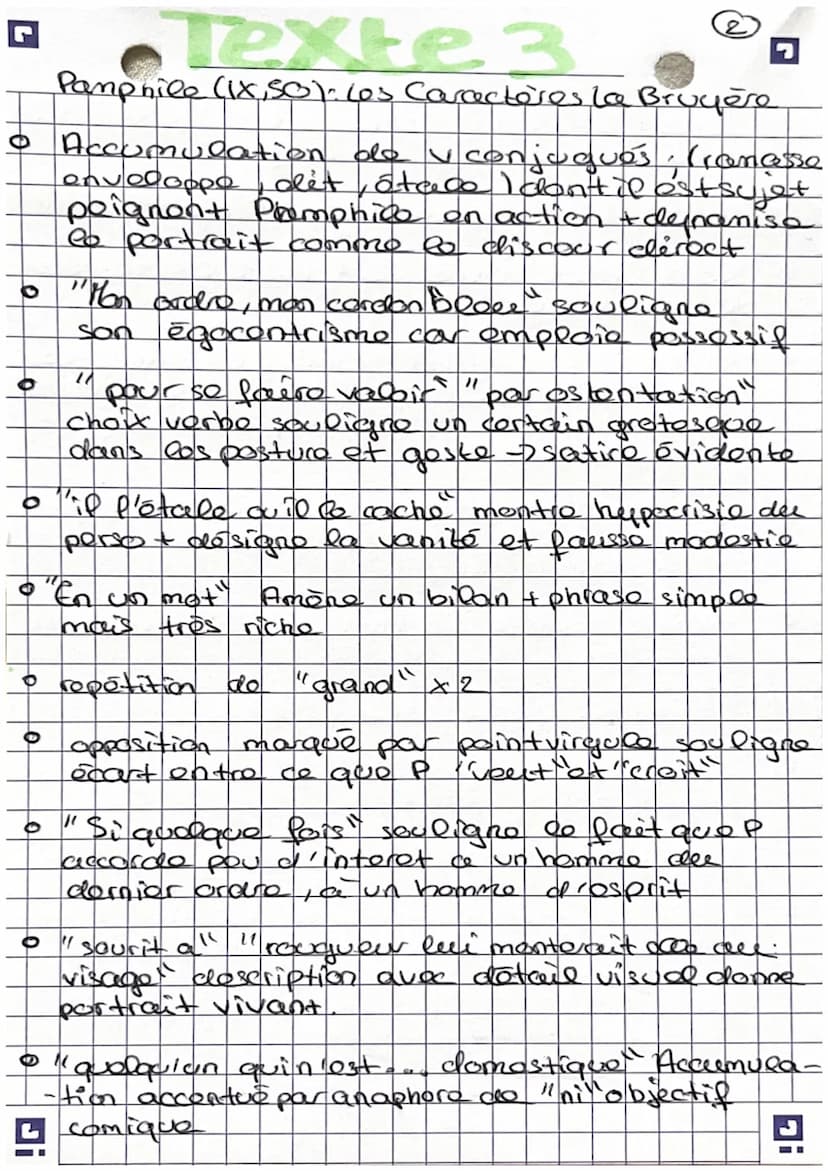 Texte 3
2
Pamphile (IX,50): Les Caractères La Bruyère
Accumulation de v conjugués : (ramasse
enveloppe, dit, étale) dont il est sujet
peignent Pamphile en action + dynamise
le portrait comme le discour direct
"Mon ordre, mon cordon bleu" souligne
son égocentrisme car emploie possessif
"pour se faire valoir" "par ostentation"
choix verbe souligne un certain grotesque
dans les posture et geste → satire évidente
"il l'étale ou il le cache" montre hypocrisie du
perso + désigne la vanité et fausse modestie
"En un mot" Amène un bilan + phrase simple
mais très riche
repétition de "grand" x 2
opposition marqué par point virgule souligne
écart entre ce que P "veut" et "croit"
"Si quelque fois" souligne le fait que P
accorde peu d'interet à un homme du
dernier ordre, à un homme d'esprit
"sourit à" "rougueur lui monterait au
visage" description avec détail visuel donne
portrait vivant.
"quelqu'un qui n'est... domestique" Accumula-
-tion accentué par anaphore de "ni" objectif
comique